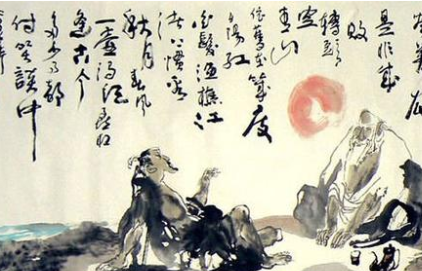 英雄
是非成
敗
轉頭
空
青山
依舊在幾度
夕陽紅
白髮漁樵江
渚上慣看
秋月春風
一壺濁酒喜相
逢古今
多少事都
付笑談中